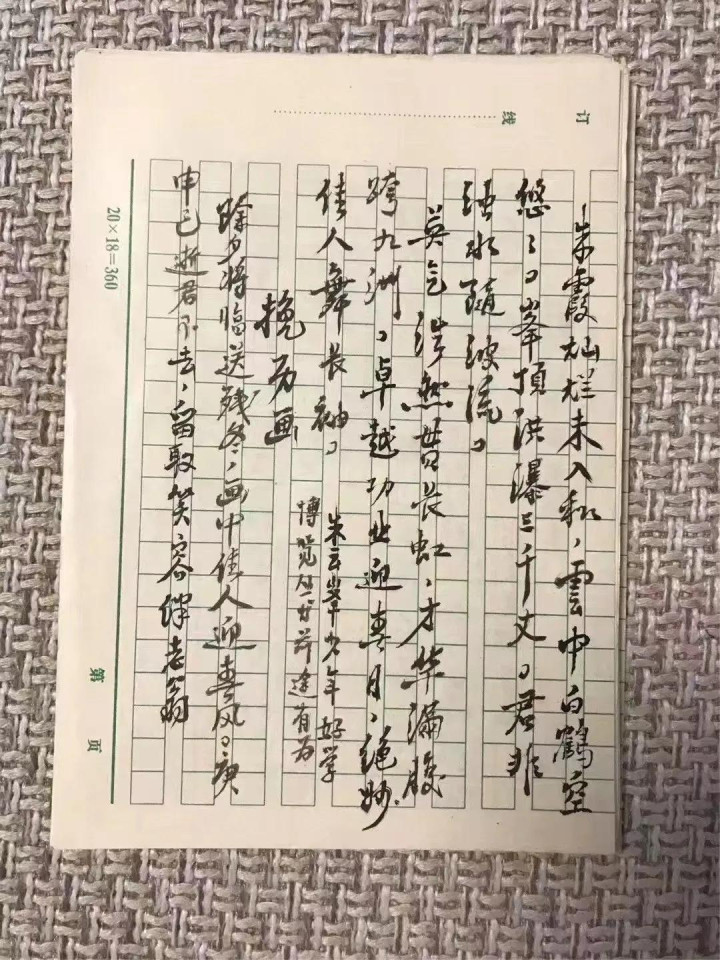 订
线
朱霞灿烂未入秋，雲中白鹤空
悠々。峯顶洪瀑三千丈。君非
水随波流。
英气浩然贯长虹，才华满腹
跨九洲。卓越功业迎春月，绝妙
佳人舞长袖。
朱云峯少年好学
博览丛书前途有为
挽为画
除夕将临送残冬，画中佳人迎春风。庚
申已逝君不去，留取笑容伴老翁
20×18=360
第 页